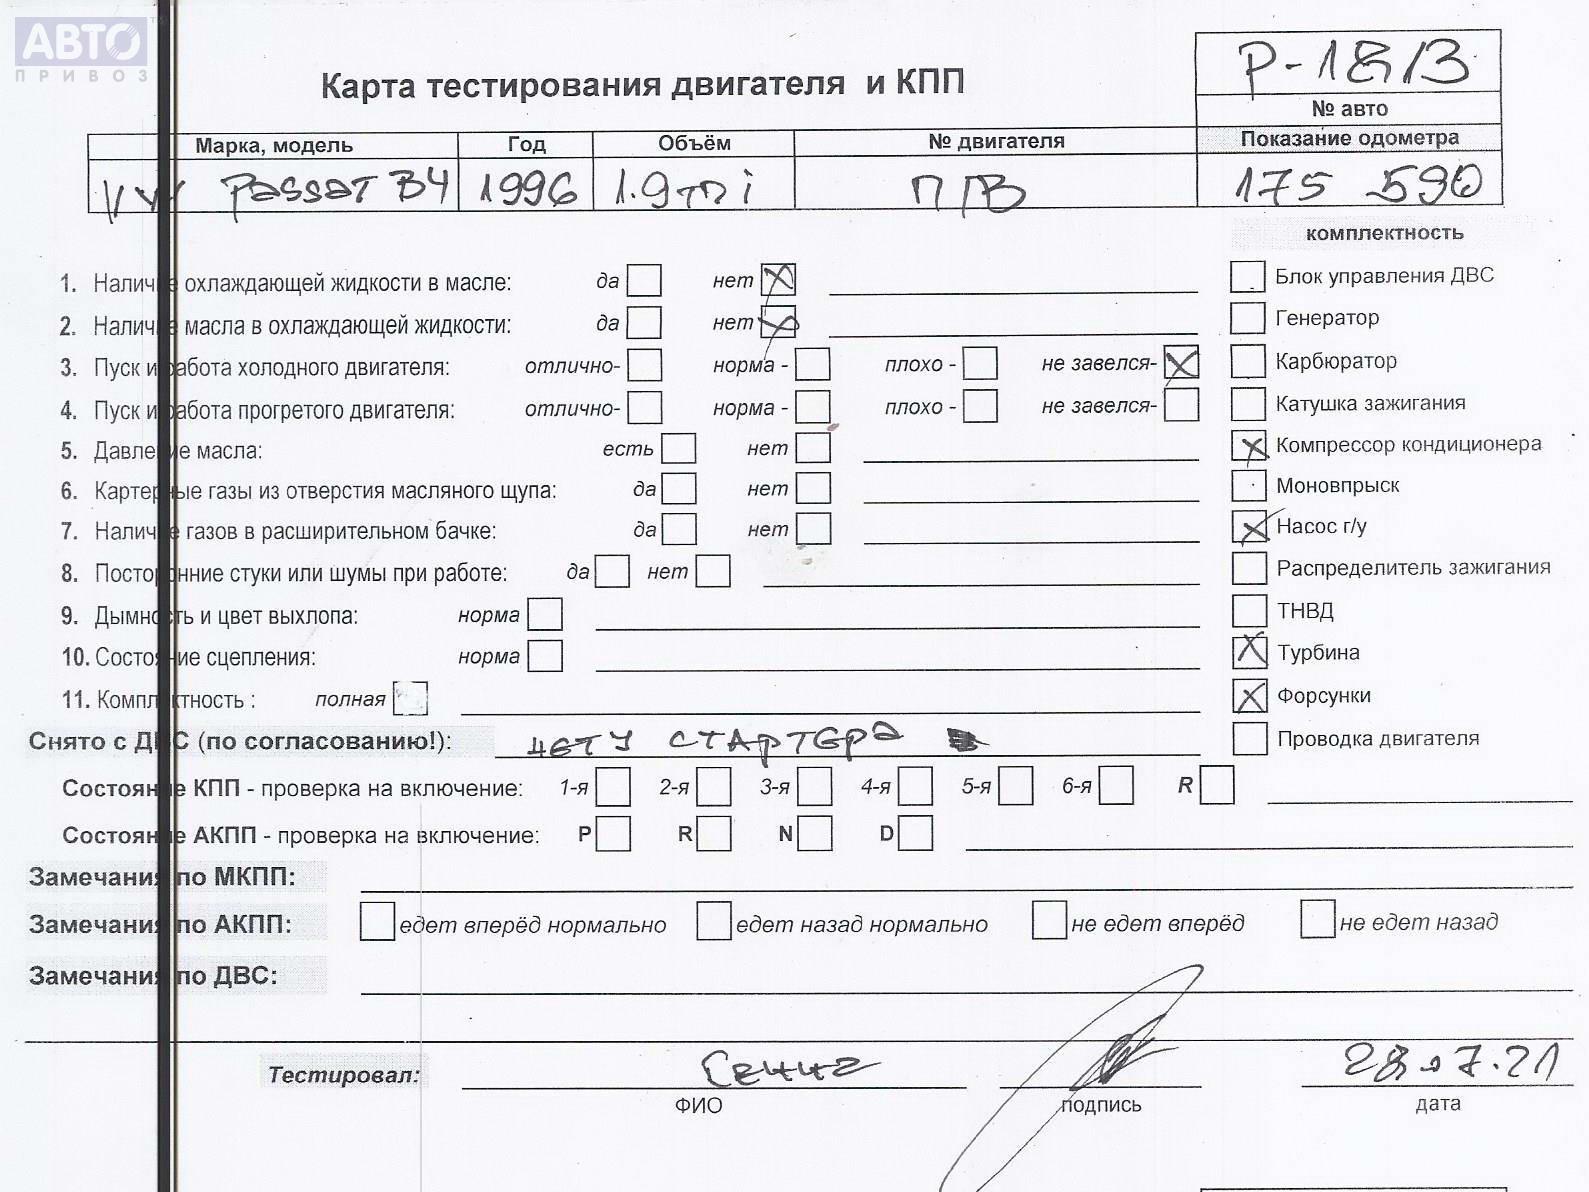 АВТО
ПРИВОЗ
Р-1813
Карта тестирования двигателя и КПП
№ авто
Марка, модель Год Объём № двигателя Показание одометра
VW Passat B4 1996 1.9 TDi П/В 175 590
комплектность
1. Наличие охлаждающей жидкости в масле: да нет
Блок управления ДВС
2. Наличие масла в охлаждающей жидкости: да нет
Генератор
3. Пуск и работа холодного двигателя: отлично- норма - плохо - не завелся-
Карбюратор
4. Пуск и работа прогретого двигателя: отлично- норма - плохо - не завелся-
Катушка зажигания
5. Давление масла: есть нет
Компрессор кондиционера
6. Картерные газы из отверстия масляного щупа: да нет
Моновпрыск
7. Наличие газов в расширительном бачке: да нет
Насос г/у
8. Посторонние стуки или шумы при работе: да нет
Распределитель зажигания
9. Дымность и цвет выхлопа: норма
ТНВД
10. Состояние сцепления: норма
Турбина
11. Комплектность : полная
Форсунки
Снято с ДВС (по согласованию!): нету стартера
Проводка двигателя
Состояние КПП - проверка на включение: 1-я 2-я 3-я 4-я 5-я 6-я R
Состояние АКПП - проверка на включение: P R N D
Замечания по МКПП:
Замечания по АКПП: едет вперёд нормально едет назад нормально не едет вперёд не едет назад
Замечания по ДВС:
Тестировал: 28.07.21
ФИО подпись дата